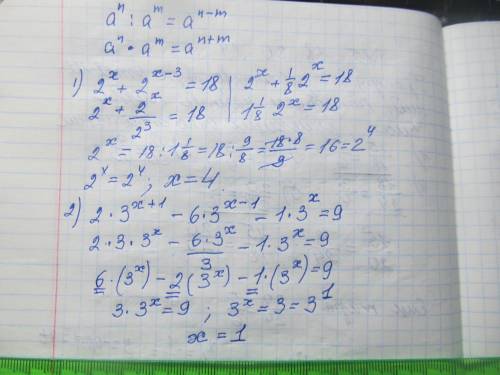 aⁿ : aᵐ = aⁿ⁻ᵐ
aⁿ • aᵐ = aⁿ⁺ᵐ
1) 2ˣ + 2ˣ⁻³ = 18 | 2ˣ + 1/8 2ˣ = 18
2ˣ + 2ˣ/2³ = 18 | 1 1/8 2ˣ = 18
2ˣ = 18 : 1 1/8 = 18 : 9/8 = 18·8/9 = 16 = 2⁴
2ˣ = 2⁴ ; x = 4
2) 2 · 3ˣ⁺¹ − 6 · 3ˣ⁻¹ − 1 · 3ˣ = 9
2 · 3 · 3ˣ − 6·3ˣ/3 − 1 · 3ˣ = 9
6 · (3ˣ) − 2 (3ˣ) − 1 · (3ˣ) = 9
3 · 3ˣ = 9 ; 3ˣ = 3 = 3¹
x = 1